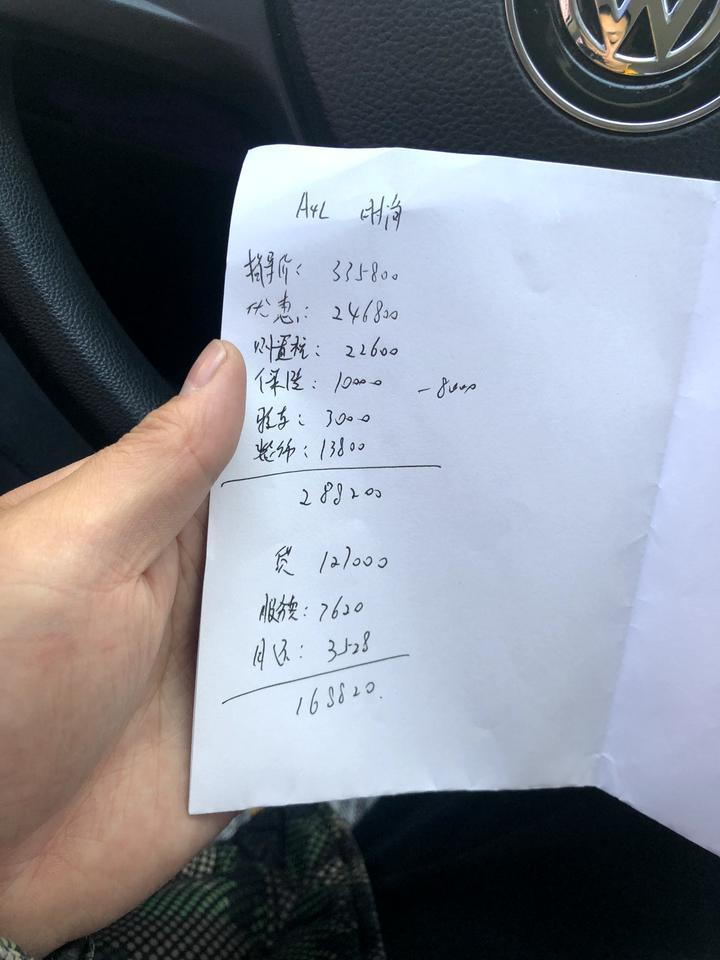 A4L 时尚
指导价：335800
优惠：246800
购置税：22600
保险：10000 -8000
验车：3000
装饰：13800
288200
贷 127000
：7620
月还：3528
168820.